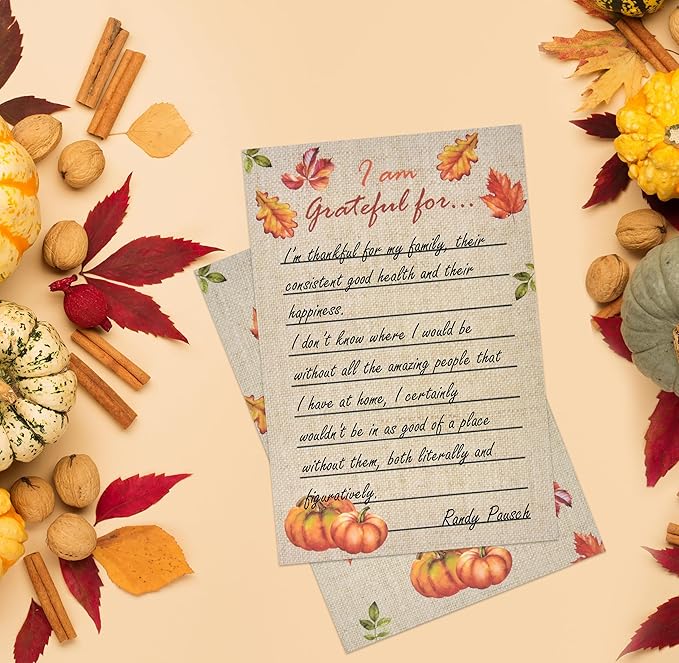 I am
Grateful for...
I'm thankful for my family, their
consistent good health and their
happiness.
I don't know where I would be
without all the amazing people that
I have at home, I certainly
wouldn't be in as good of a place
without them, both literally and
figuratively.
Randy Pausch